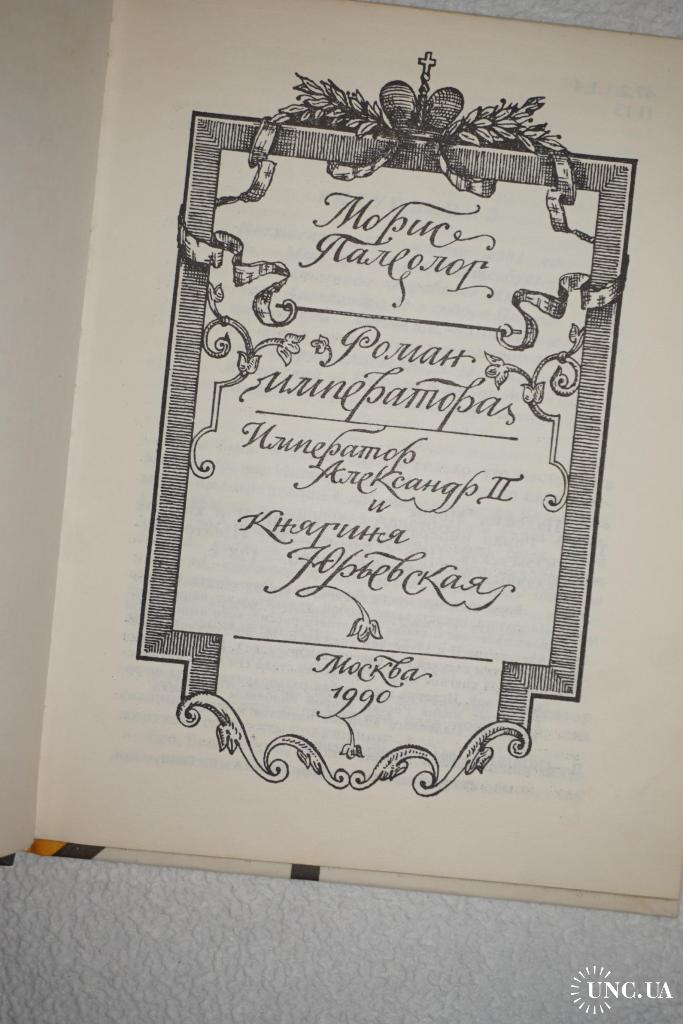 Морис
Палеолог
Роман
императора
Император
Александр II
и
Княгиня
Юрьевская
Москва
1990
UNC.UA